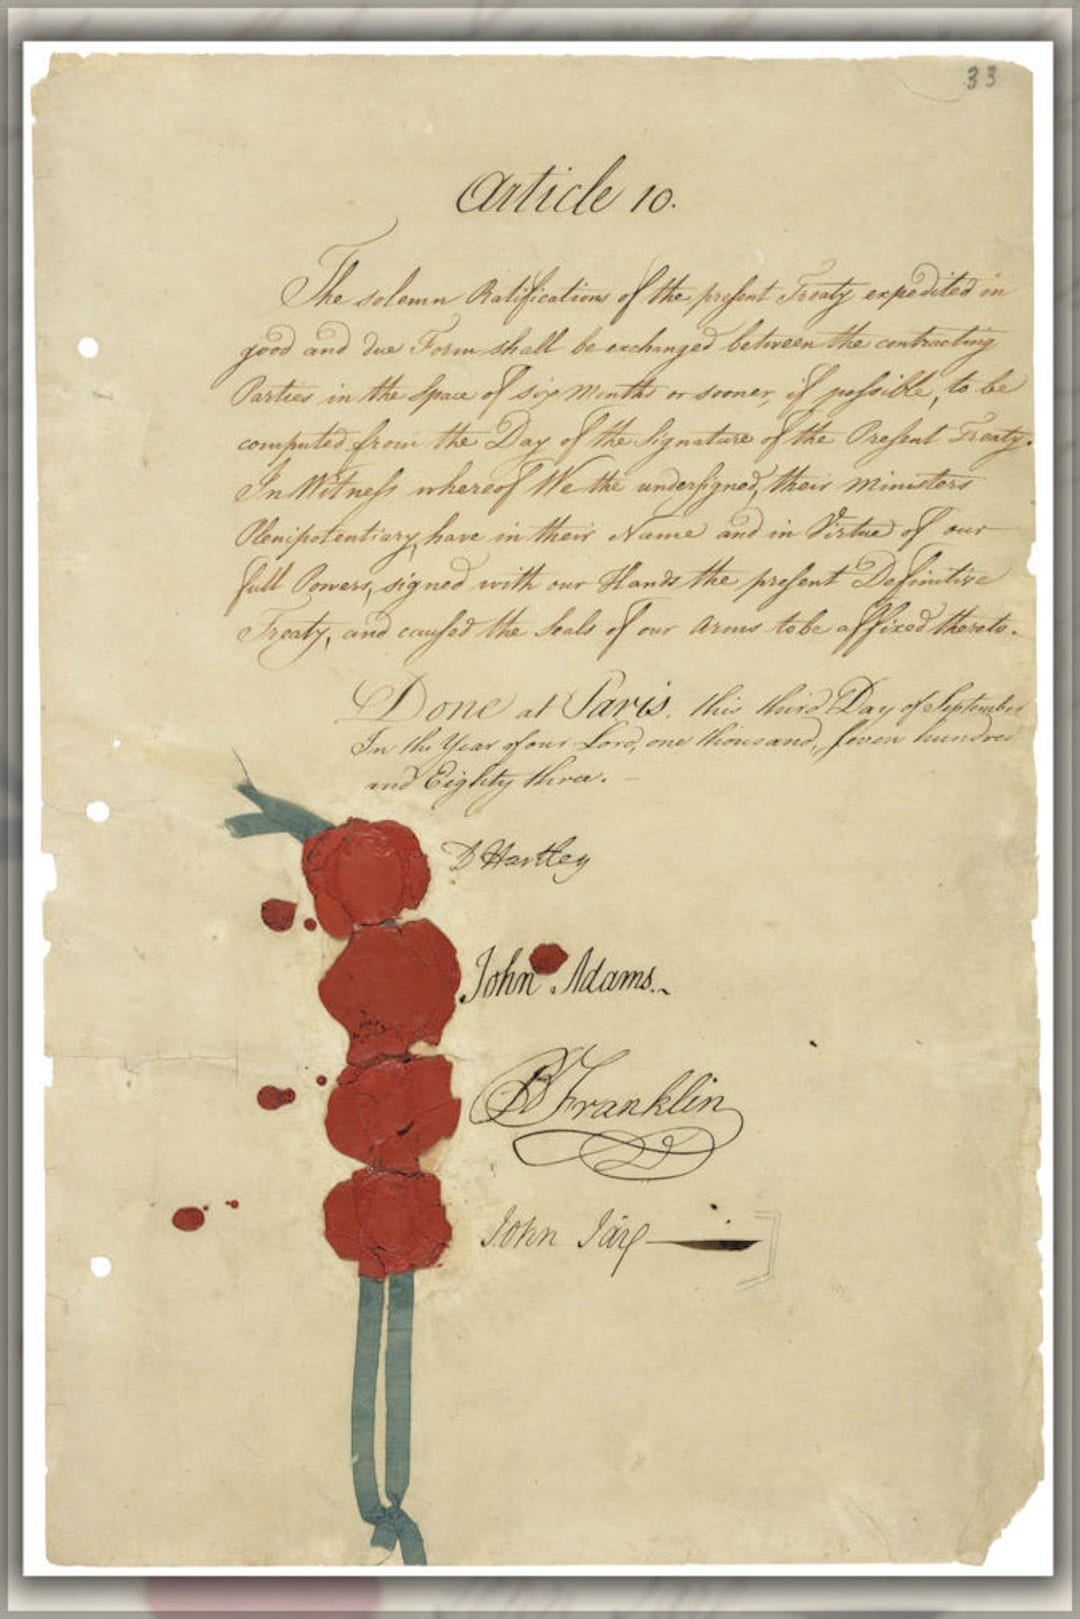 33
Article 10.
The solemn Ratifications of the present Treaty expedited in
good and due Form shall be exchanged between the contracting
Parties in the Space of six Months or sooner, if possible, to be
computed from the Day of the Signature of the Present Treaty.
In Witness whereof We the undersigned, their Ministers
Plenipotentiary, have in their Name and in Virtue of our
full Powers, signed with our Hands the present Definitive
Treaty, and caused the Seals of our Arms to be affixed thereto.
Done at Paris, this third Day of September
In the Year of our Lord, one thousand, seven hundred
and Eighty three.
D Hartley
John Adams.
B Franklin
John Jay